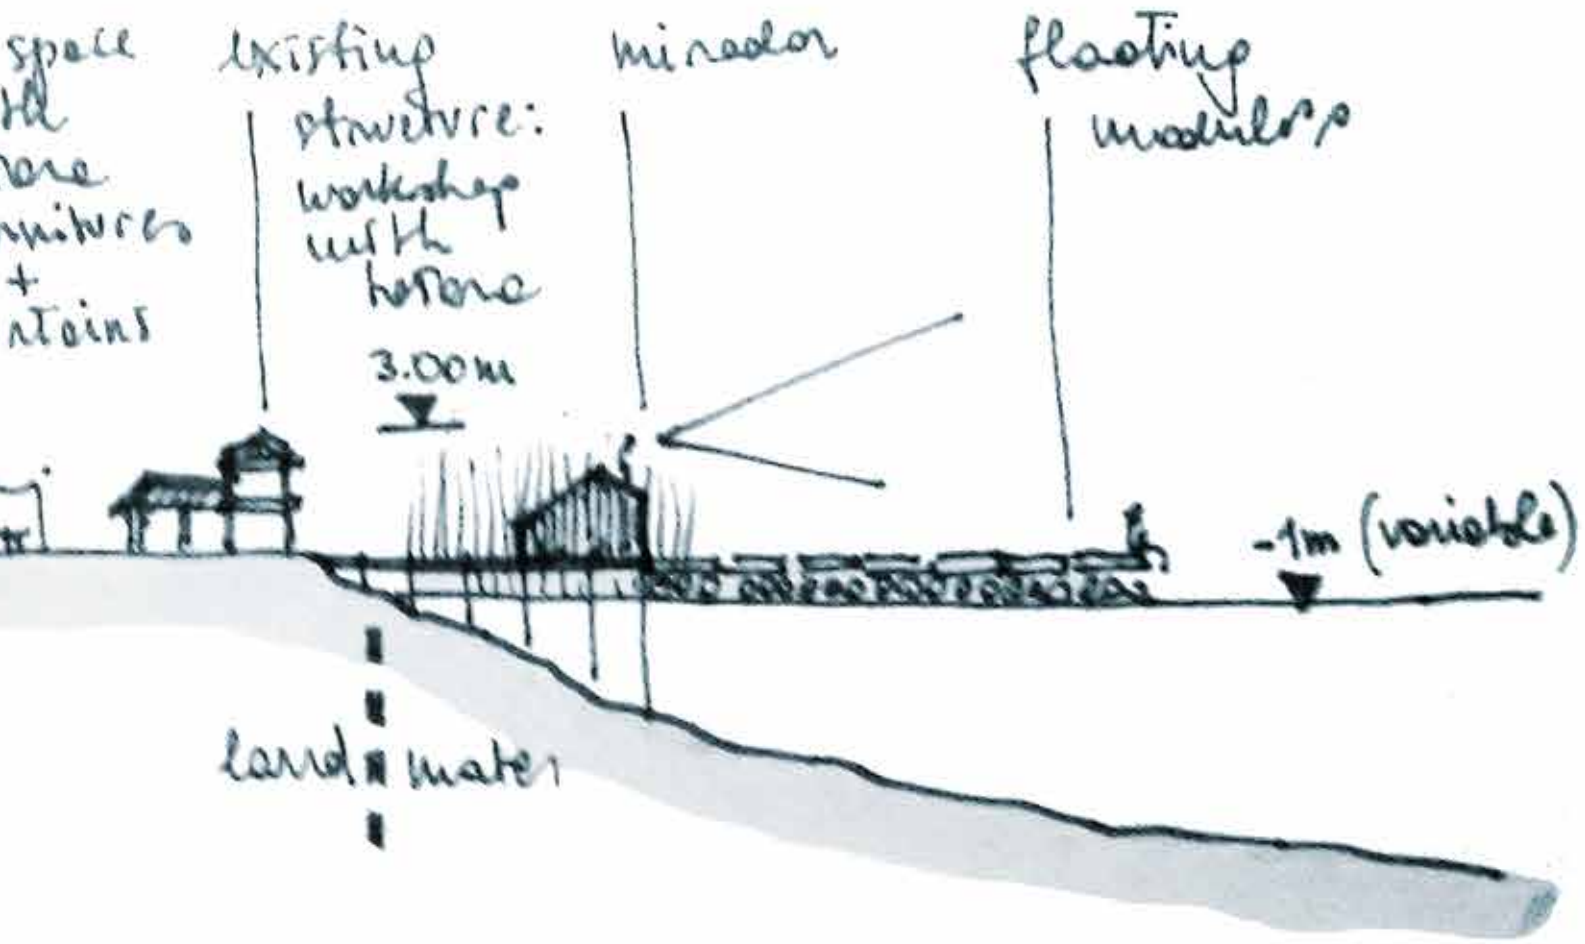 space
+
existing
structure:
workshop
with
totora
mirador
floating
modules
3.00m
-1m (variable)
land water